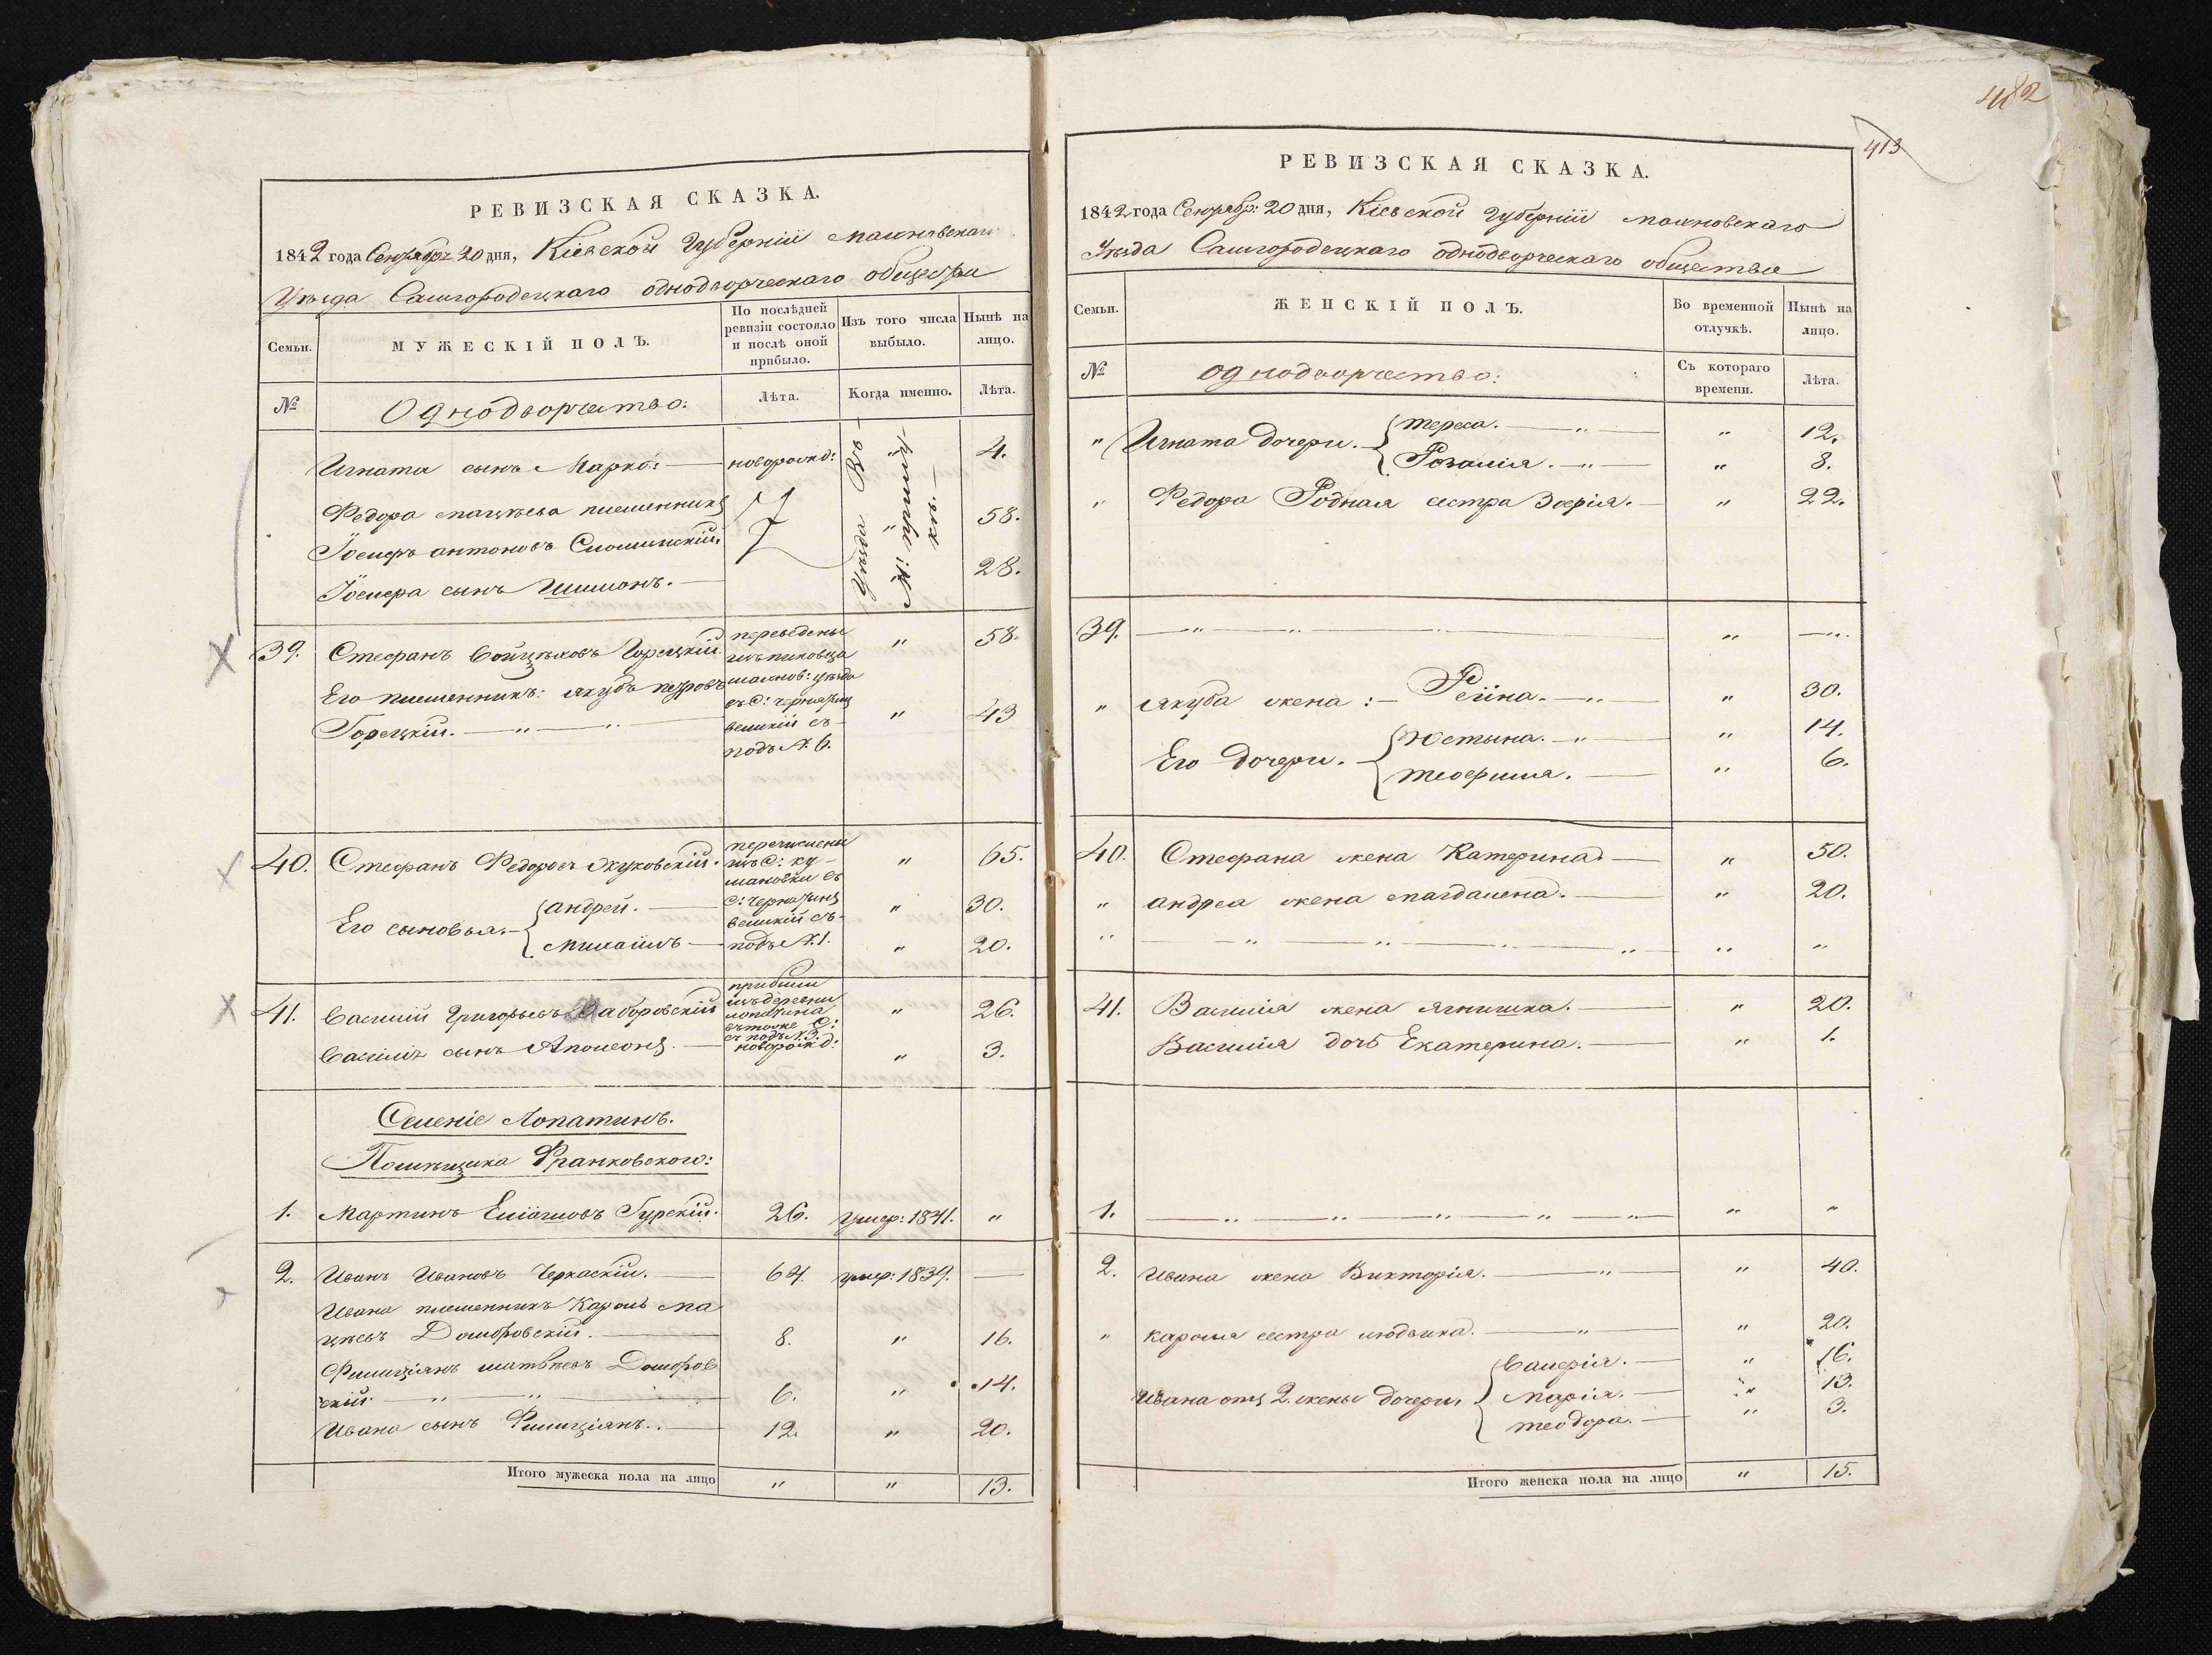 РЕВИЗСКАЯ СКАЗКА.
1842 года Сентябр: 20 дня, Кіевской Губерніи Махновскаго
Уѣзда Самгородецкаго однодворческаго общества
Семьи.
МУЖЕСКІЙ ПОЛЪ.
По послѣдней ревизіи состояло и послѣ оной прибыло.
Изъ того числа выбыло.
Нынѣ на лицо.
№
Однодворчество:
Лѣта.
Когда именно.
Лѣта.
Игната сынъ Марко: — новорожд: 4.
Федора Мацѣева племенникъ
Іосифъ Антоновъ 58.
Іосифа сынъ Шимонъ. — 28.
Уѣзда Въ
39. Стефанъ Войцѣховъ Горецкій. переведены " 58.
Его племенникъ: Якубъ Петровъ махнов: уѣзда
въ С:
Горецкій. — " — " великій съ " 43
подъ №. 6.
40. Стефанъ Федоровъ Жуковскій. перечислены " 65.
изъ С: Ку-
мановки въ
Его сыновья. { Андрей. — С: " 30.
великій съ
Михаилъ — подъ №. 1. " 20.
41. Василій Григорьевъ Заборовскій прибыли
изъ деревни " 26.
Лопатина
съ подъ №. 3.
Василія сынъ Аполеонъ. — новорожд: " 3.
Селеніе Лопатинъ.
Помѣщика Франковского:
1. Мартинъ Гурскій. 26. умер: 1841. "
2. Иванъ Ивановъ Черкаскій. — 64. умер: 1839. —
Ивана племенникъ Кароль Ма
цѣевъ Домбровскій. — 8. " 16.
Филиціянъ Матвѣевъ Домбров
скій. — " — " 6. " 14.
Ивана сынъ Филиціянъ. — 12. " 20.
Итого мужеска пола на лицо " " 13.
412
413
РЕВИЗСКАЯ СКАЗКА.
1842 года Сентябр: 20 дня, Кіевской Губерніи Махновскаго
Уѣзда Самгородецкаго однодворческаго общества
Семьи.
ЖЕНСКІЙ ПОЛЪ.
Во временной отлучкѣ.
Нынѣ на лицо.
№
Однодворчество:
Съ котораго времени.
Лѣта.
" Игната дочери. { Тереса. — " — " 12.
Розалія. — " — " 8.
" Федора Родная сестра Зофія. — " 22.
39. — " — " — " — " — "
" Якуба жена: — Реіна. — " — " 30.
Его дочери. { Юстына. — " — " 14.
Теофиля. — " 6.
40. Стефана жена Катерина. — " 50.
" Андрея жена Магдалена. — " 20.
" — " — " — " — " " "
41. Василія жена Ягнишка. — " 20.
Василія дочь Екатерина. — " 1.
1. — " — " — " — " — " — " "
2. Ивана жена Викторія. — " — " 40.
" Кароля сестра Людвика. — " — " 20.
Ивана отъ 2. жены дочери, { Валерія. — " 16.
Марія. — " 13.
Теодора. — " 3.
Итого женска пола на лицо " 15.